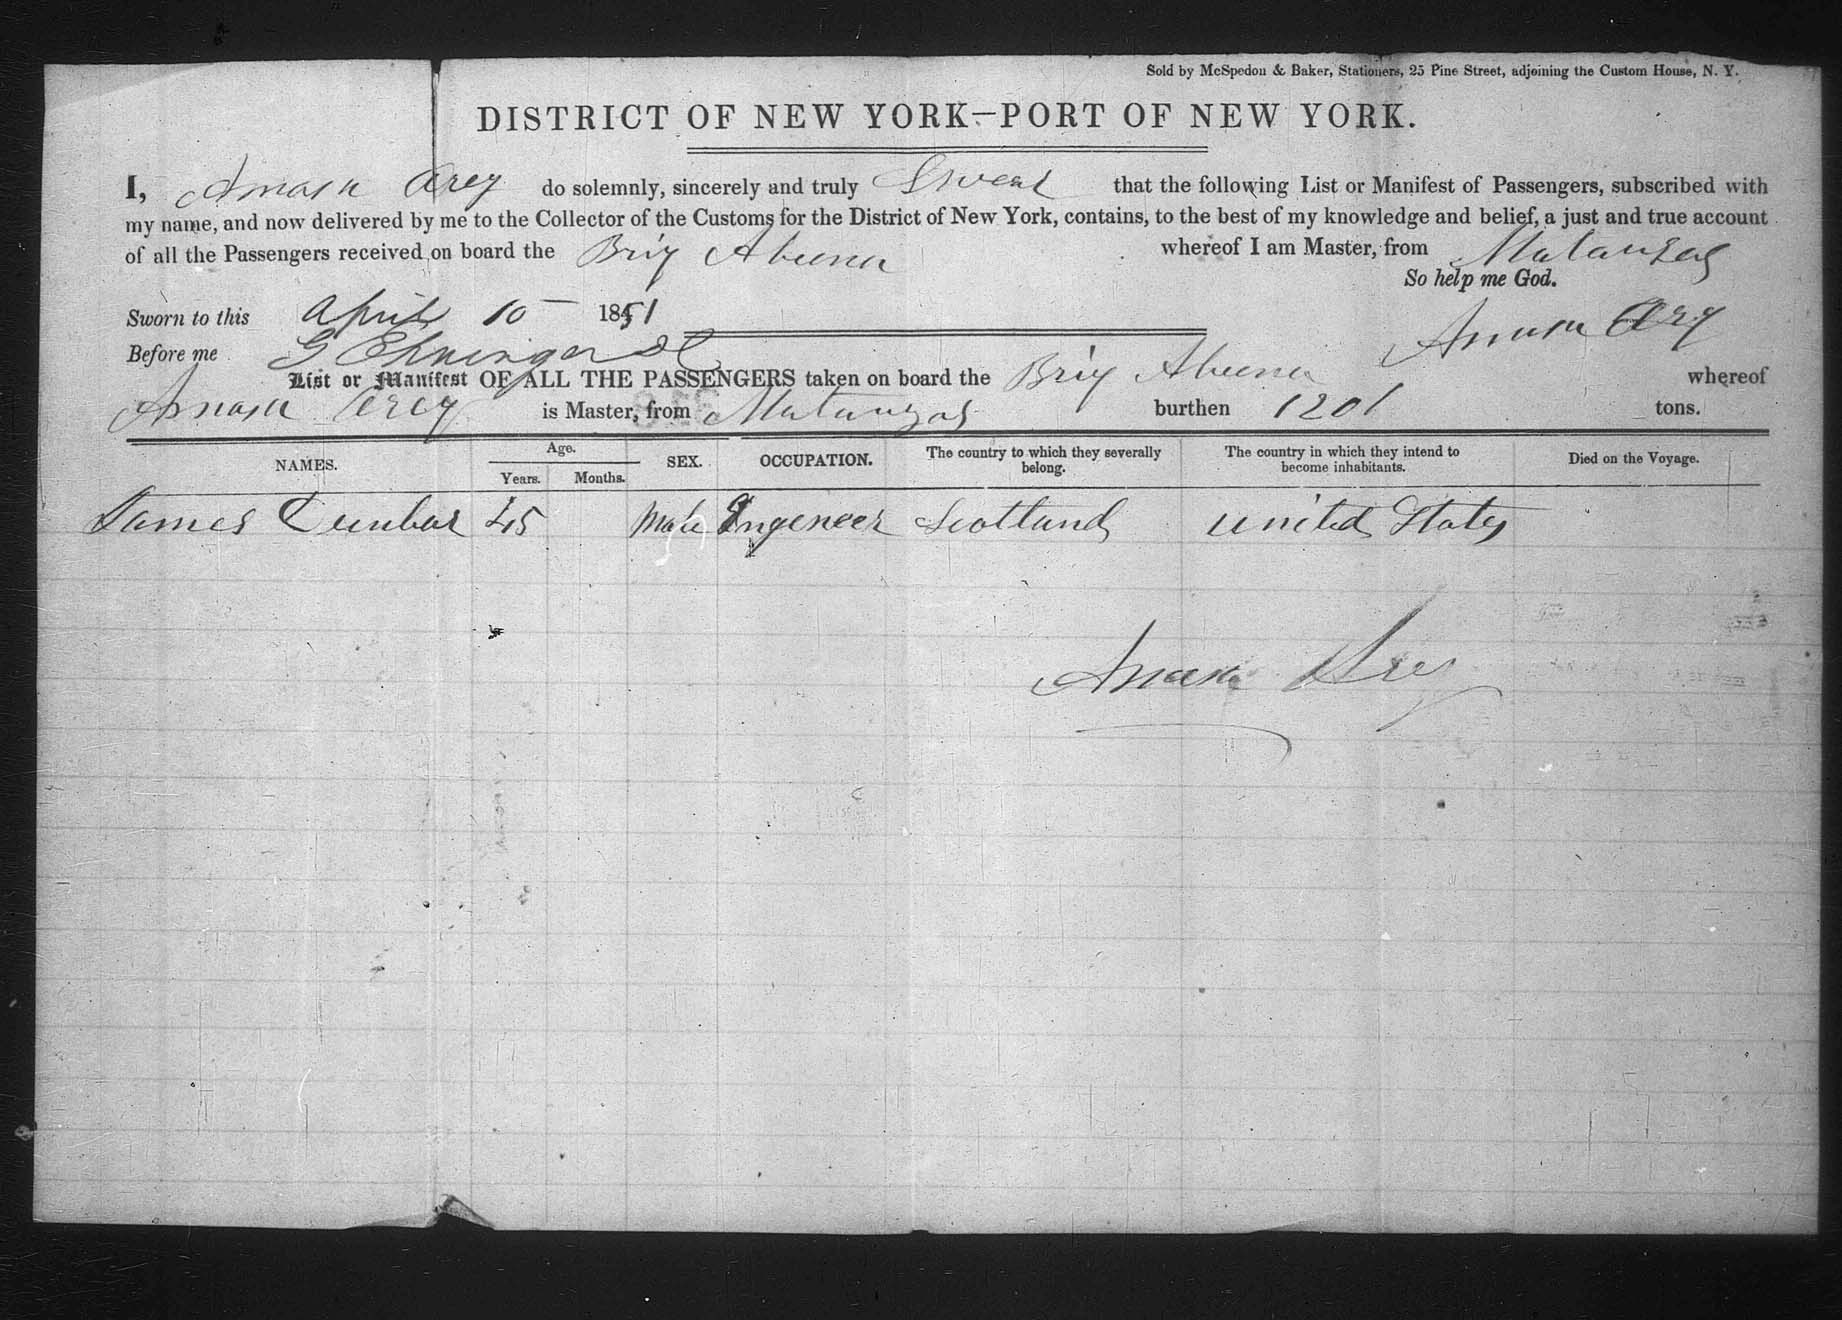 Sold by McSpedon & Baker, Stationers, 25 Pine Street, adjoining the Custom House, N. Y.
DISTRICT OF NEW YORK—PORT OF NEW YORK.
I, Amasa Arey do solemnly, sincerely and truly Swear that the following List or Manifest of Passengers, subscribed with
my name, and now delivered by me to the Collector of the Customs for the District of New York, contains, to the best of my knowledge and belief, a just and true account
of all the Passengers received on board the Brig whereof I am Master, from Matanzas
So help me God.
Sworn to this April 10 1851
Amasa Arey
Before me G Ehninger
List or Manifest OF ALL THE PASSENGERS taken on board the Brig whereof
Amasa Arey is Master, from Matanzas burthen tons.
NAMES. Age. Years. Months. SEX. OCCUPATION. The country to which they severally belong. The country in which they intend to become inhabitants. Died on the Voyage.
James Dunbar 45 Male Ingeneer Scotland United States
Amasa Arey